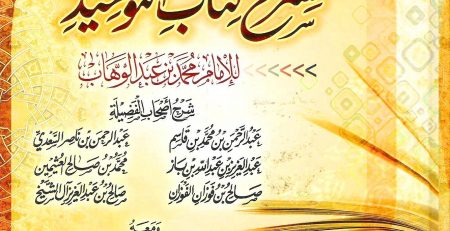 شرح كتاب التوحيد
للإمام محمد بن عبد الوهاب
شرح أصحاب الفضيلة
عبد الرحمن بن محمد بن قاسم
عبد الرحمن بن ناصر السعدي
عبد العزيز بن عبد الله بن باز
محمد بن صالح العثيمين
صالح بن فوزان الفوزان
صالح بن عبد العزيز آل الشيخ
ومعه